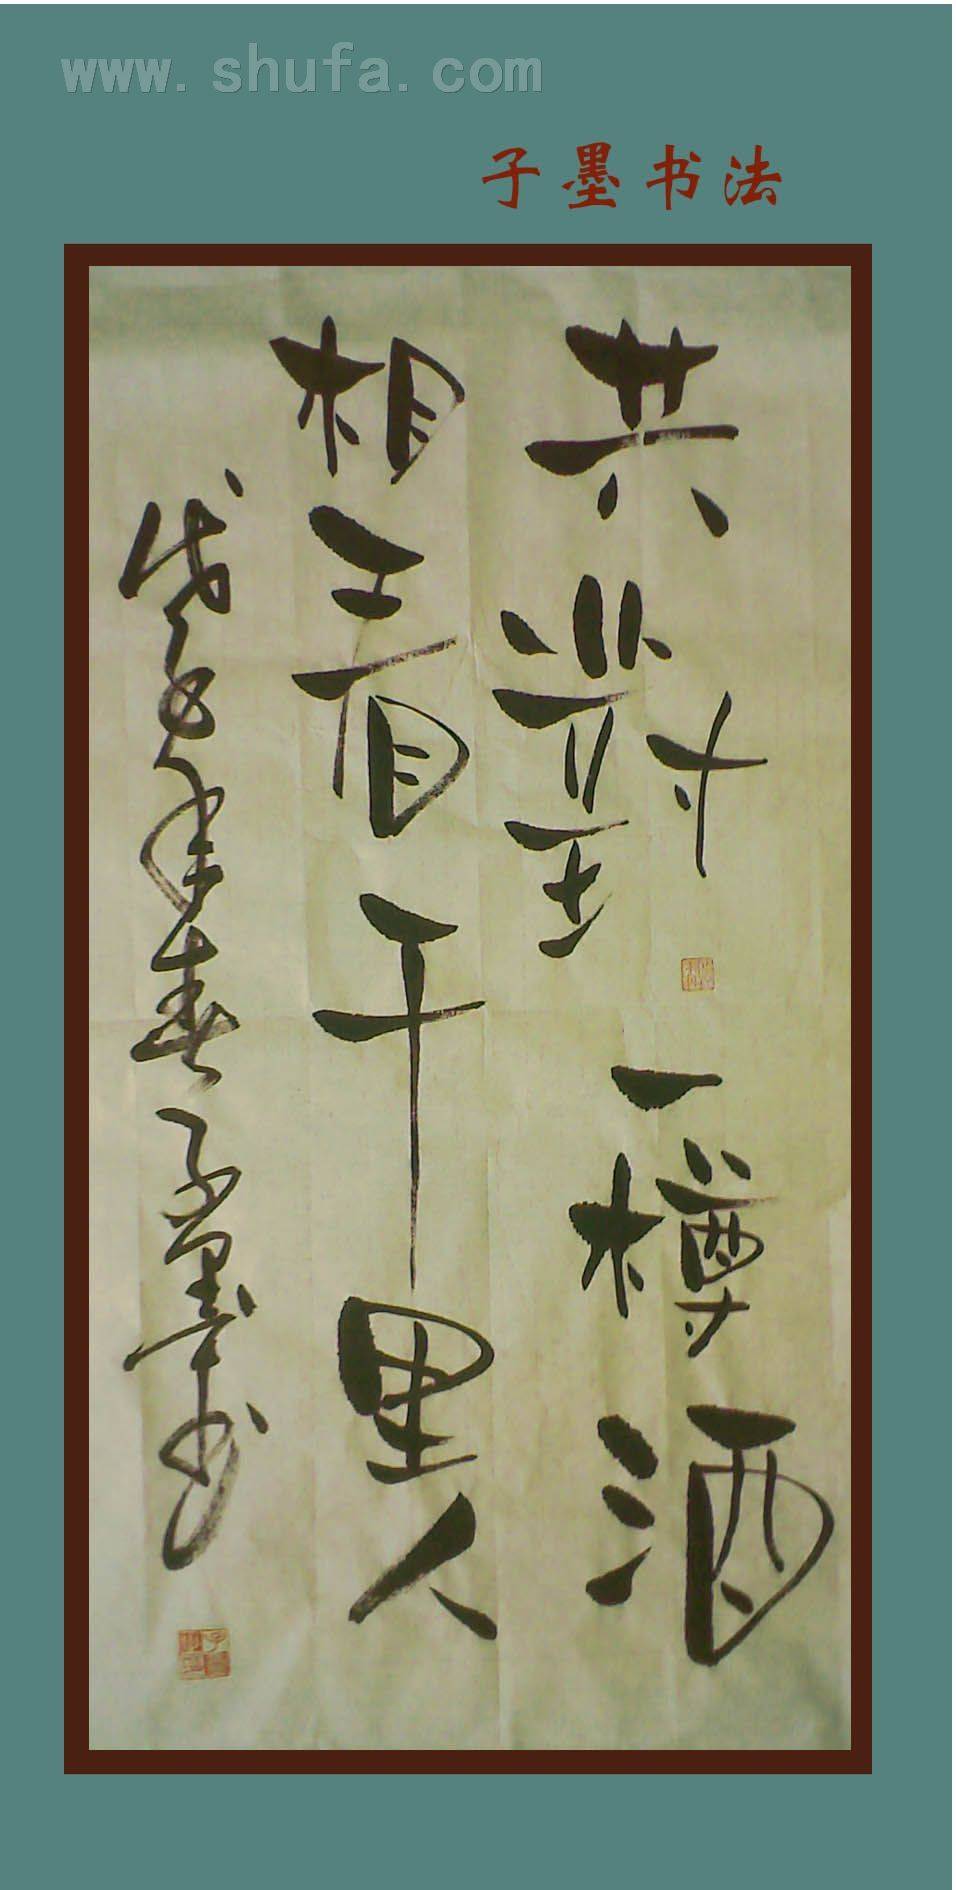 www.shufa.com
子墨书法
共對一樽酒
相看千里人
戊子年春子墨书